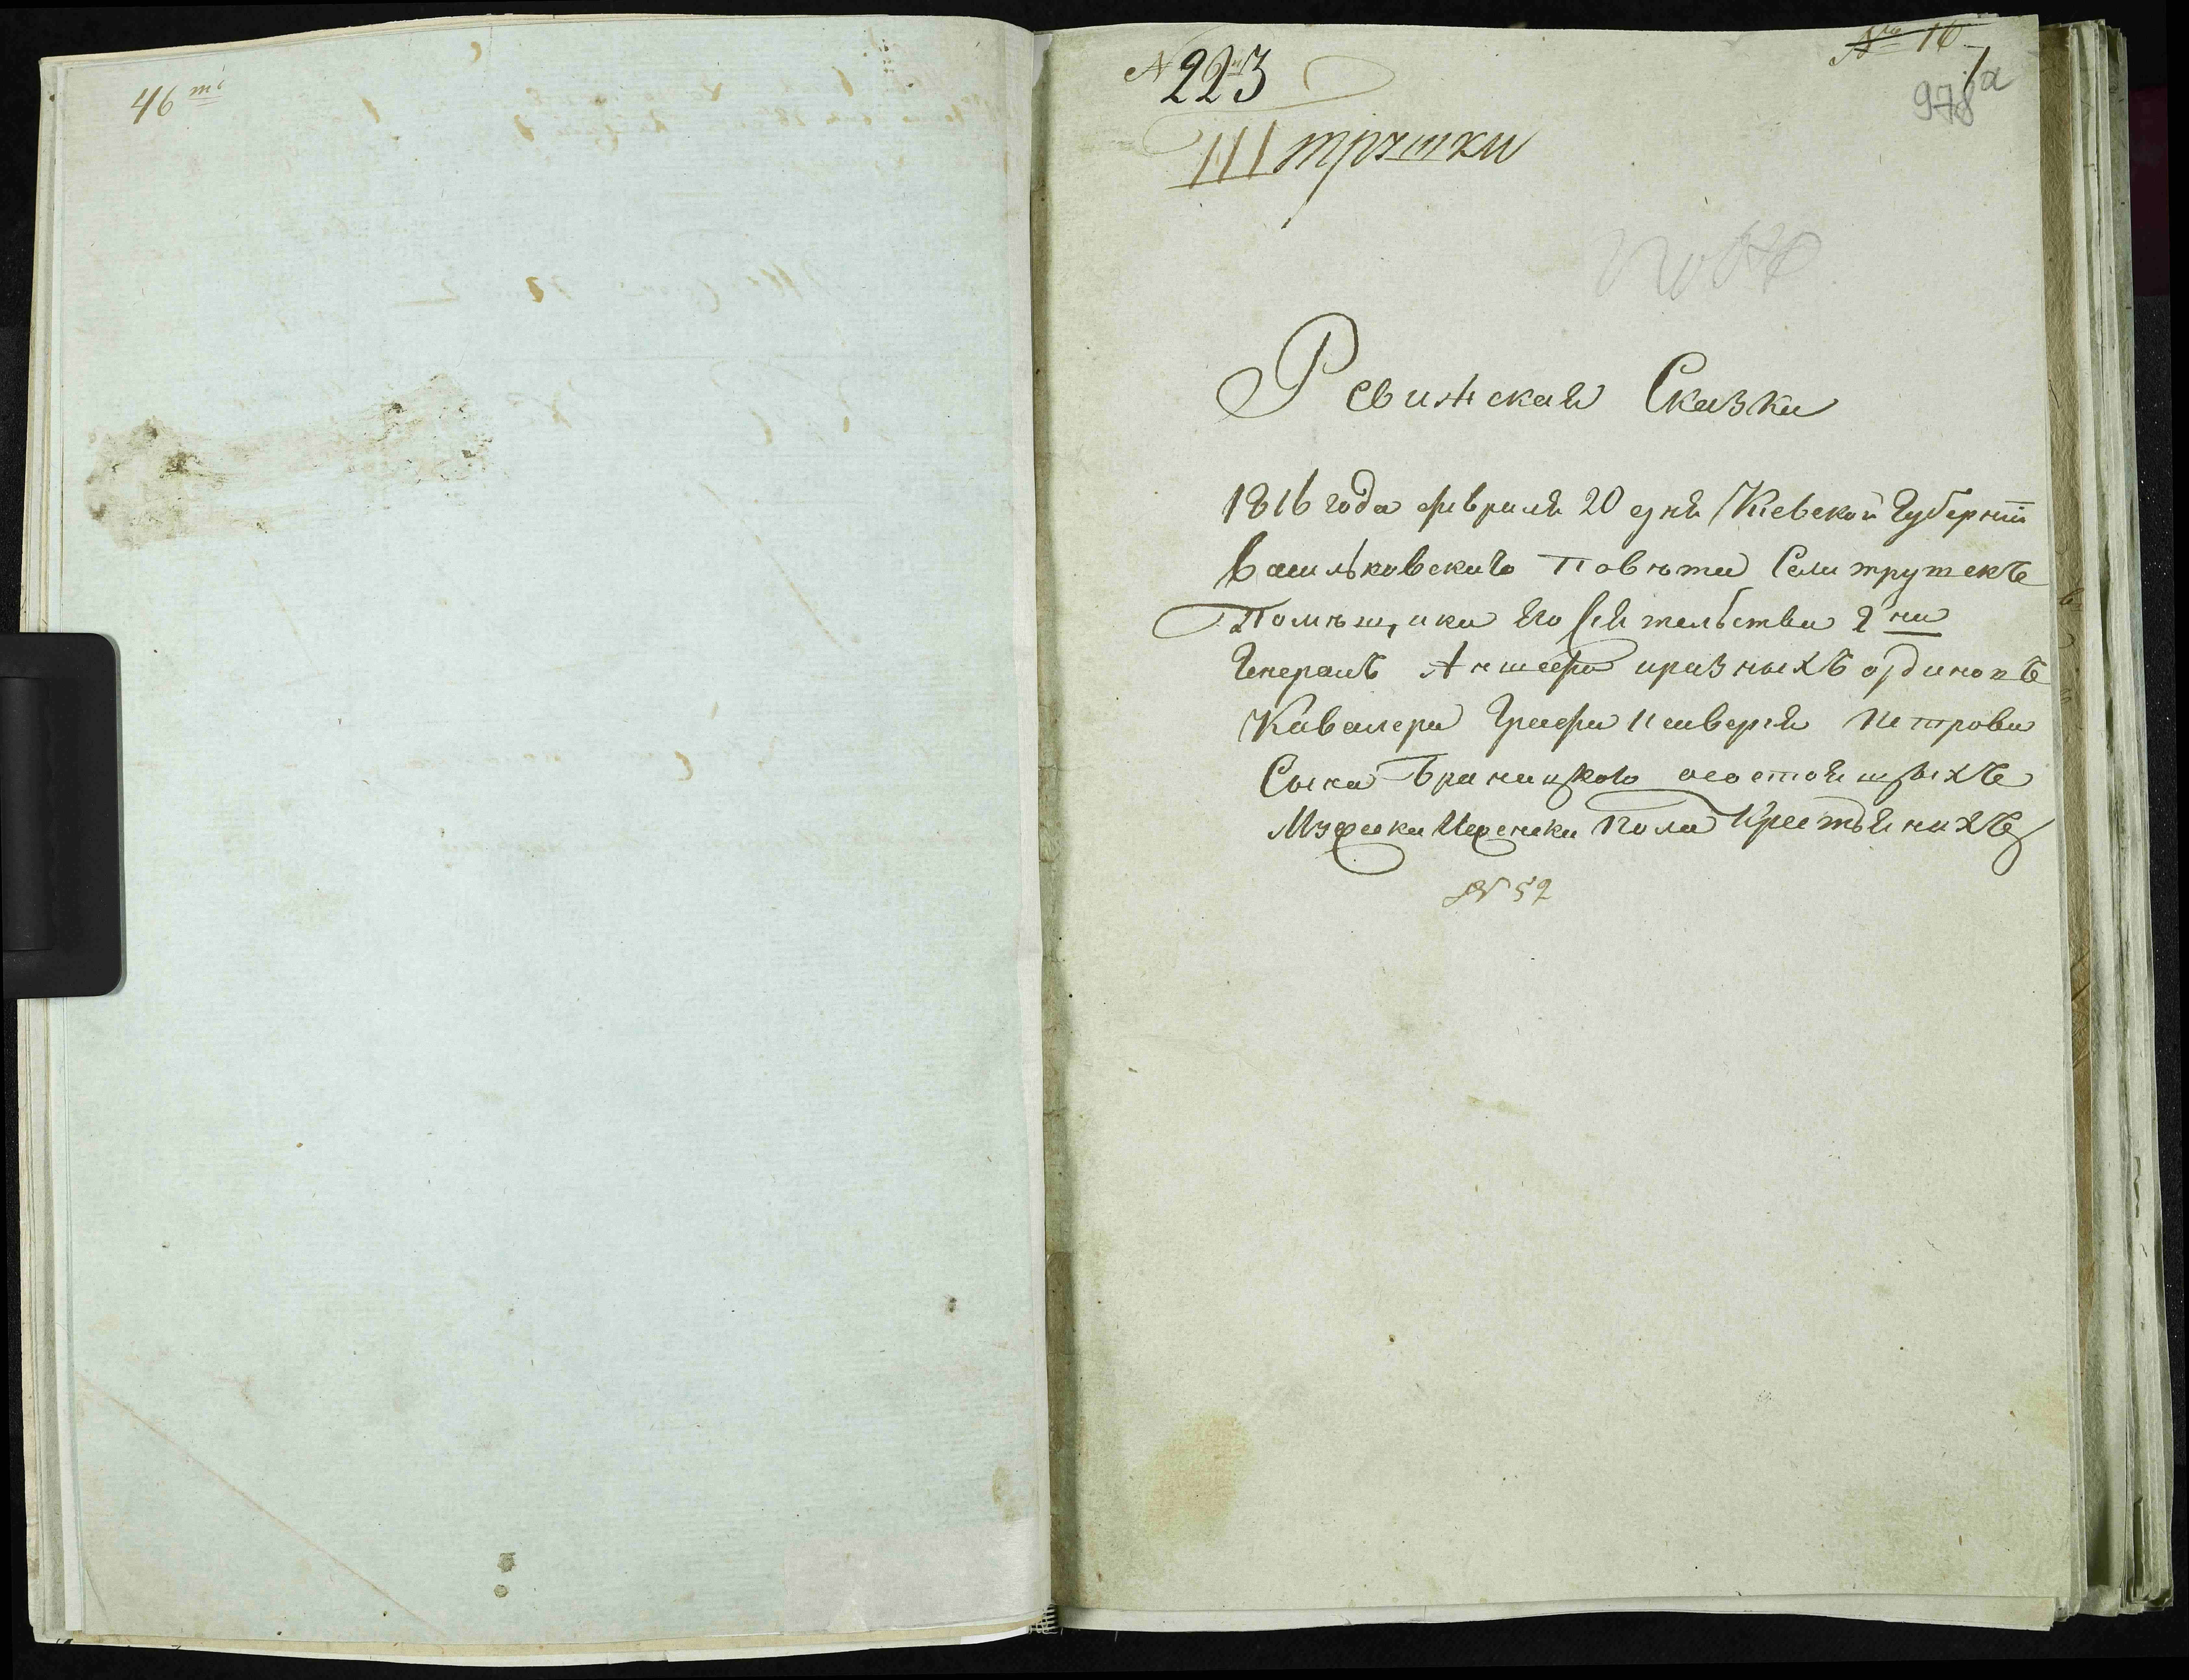 46 ть
№ 16
№ 223
978 а
1
III трушки
Ревижская Сказка
1816 года февраля 20 дня Кіевской Губерніи
Васильковскаго повѣта Села трушекъ
Помѣщика Его Сіятельства Г на
Генералъ Аншефа иразныхъ ординовъ
Кавалера Графа Ксаверія Петрова
Сына Браницкого осостоящихъ
Мужеска Иженска Пола Крестьянахъ
№ 52